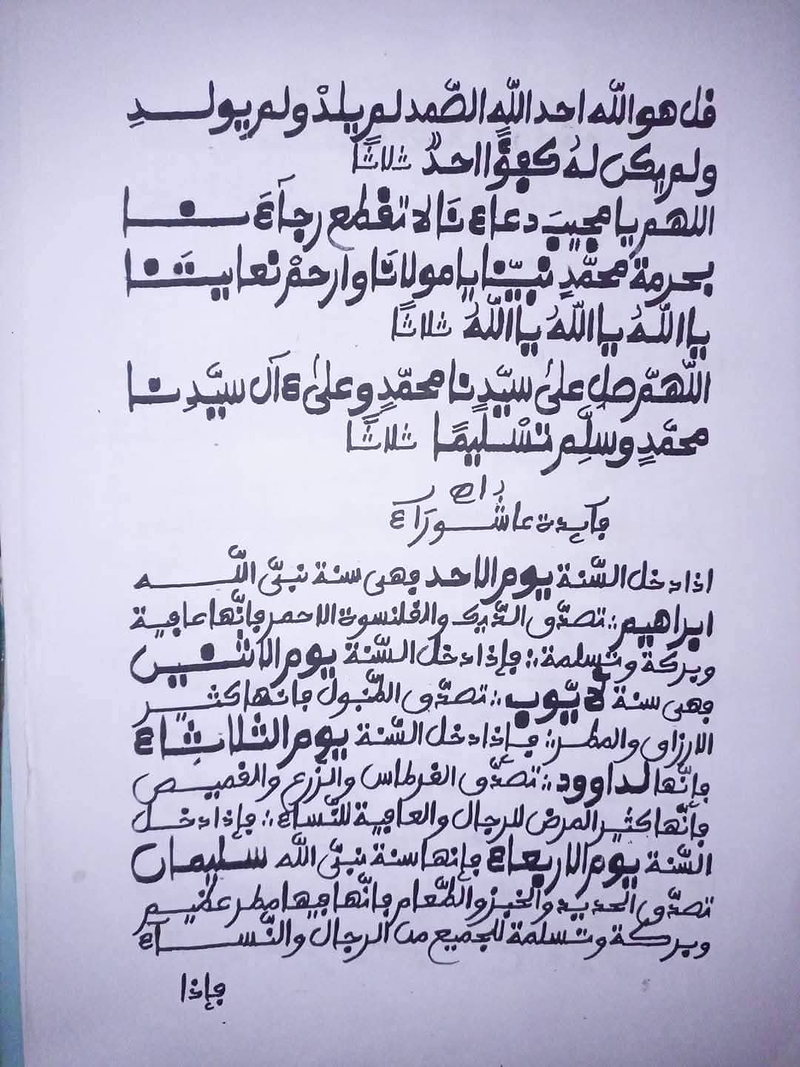 قل هو الله احد الله الصّمد لم يلدْ ولم يولدِ
ولم يكن لهُ كفؤًا احدٌ ثلاثًا
اللهمّ يا مجيبَ دعاءنَا لا تقطع رجآءَنا
بحرمة محمّدٍ نبيّنا يا مولانَا وارحمْ نعايتَنا
يا اللهُ يا اللهُ يا اللهُ ثلاثًا
اللّهمّ صل علىٰ سيّدِنا محمّدٍ وعلىٰ ءآل سيّدِنا
محمّدٍ وسلِّم تسْليمًا ثلاثًا
فآيدة عاشورآء
اذا دخل السّنة يوم الاحد فهى سنة نبىّ الله
ابراهيم تصدّق الدّيك والقلنسوة الاحمر فإنّها عافية
وبركة وتسلمة فإذا دخل السّنة يوم الاثنين
فهى سنة لايّوب تصدّق الطّبول فانها كثير
الارزاق والمطر فإذا دخل السّنة يوم الثّلاثاء
فإنّها لداوود تصدّق القرطاس والزّرع والقميص
فانّها كثير المرض للرجال والعافية للنّساء فإذا دخل
السّنة يوم الاربعاء فإنها سنة نبىّ الله سليمان
تصدّق الحديد والخبز والطّعام فانّها فيها مطر عظيم
وبركة وتسلمة للجميع من الرجال والنّساء
فإذا